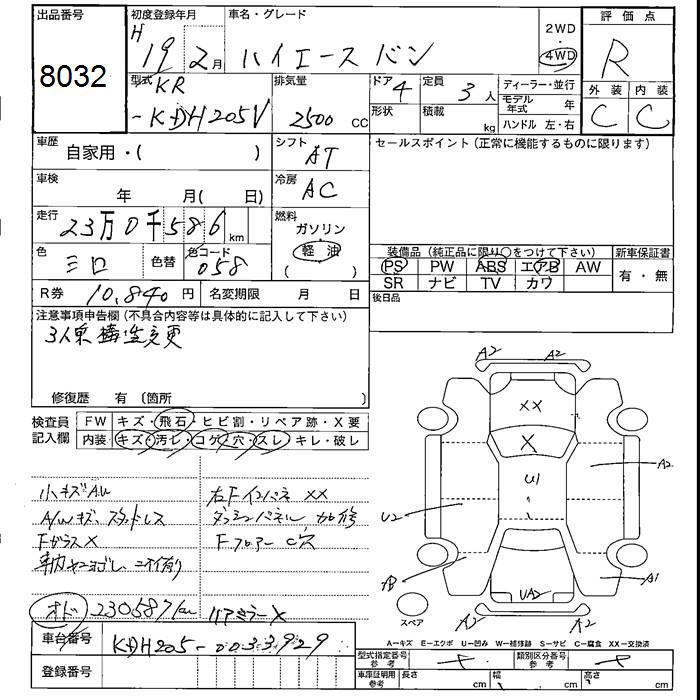 出品番号
8032
初度登録年月
H 19 2月
車名・グレード
ハイエース バン
2WD
4WD
評価点
R
外装 内装
C C
型式 KR
-KDH205V
排気量
2500 CC
ドア 4
形状
定員 3 人
積載 kg
ディーラー・並行
モデル年式 年
ハンドル 左・右
車歴
自家用・( )
シフト
AT
セールスポイント(正常に機能するものに限ります)
車検
年 月( 日)
冷房
AC
走行
23万0千586 km
燃料
ガソリン
軽油
( )
色
シロ
色替
色コード
058
装備品(純正品に限り○をつけて下さい)
新車保証書
PS PW ABS エアB AW
SR ナビ TV カワ
有・無
R券 10,840 円
名変期限 月 日
後日品
注意事項申告欄(不具合内容等は具体的に記入して下さい)
3人乗 構造変更
修復歴 有 (箇所 )
検査員記入欄
FW キズ・飛石・ヒビ割・リペア跡・X要
内装 キズ・汚レ・コゲ・穴・スレ・キレ・破レ
小キズAU
A/Wキズ、スタッドレス
Fガラス X
車内ヤニヨゴレ ニオイ有り
オド 230587km
右Fインパネ XX
ダッシュパネル 加修
Fフロアー C穴
リアミラー X
A2 A2
XX
X
U1
A2
U2
A3
A1
UA2
A2 A2
スペア
A=キズ E=エクボ U=凹み W=補修跡 S=サビ C=腐食 XX=交換済
車台番号
KDH205-0033929
登録番号
型式指定番号 参考
類別区分番号 参考
車庫証明用 参考
長さ cm 幅 cm 高さ cm